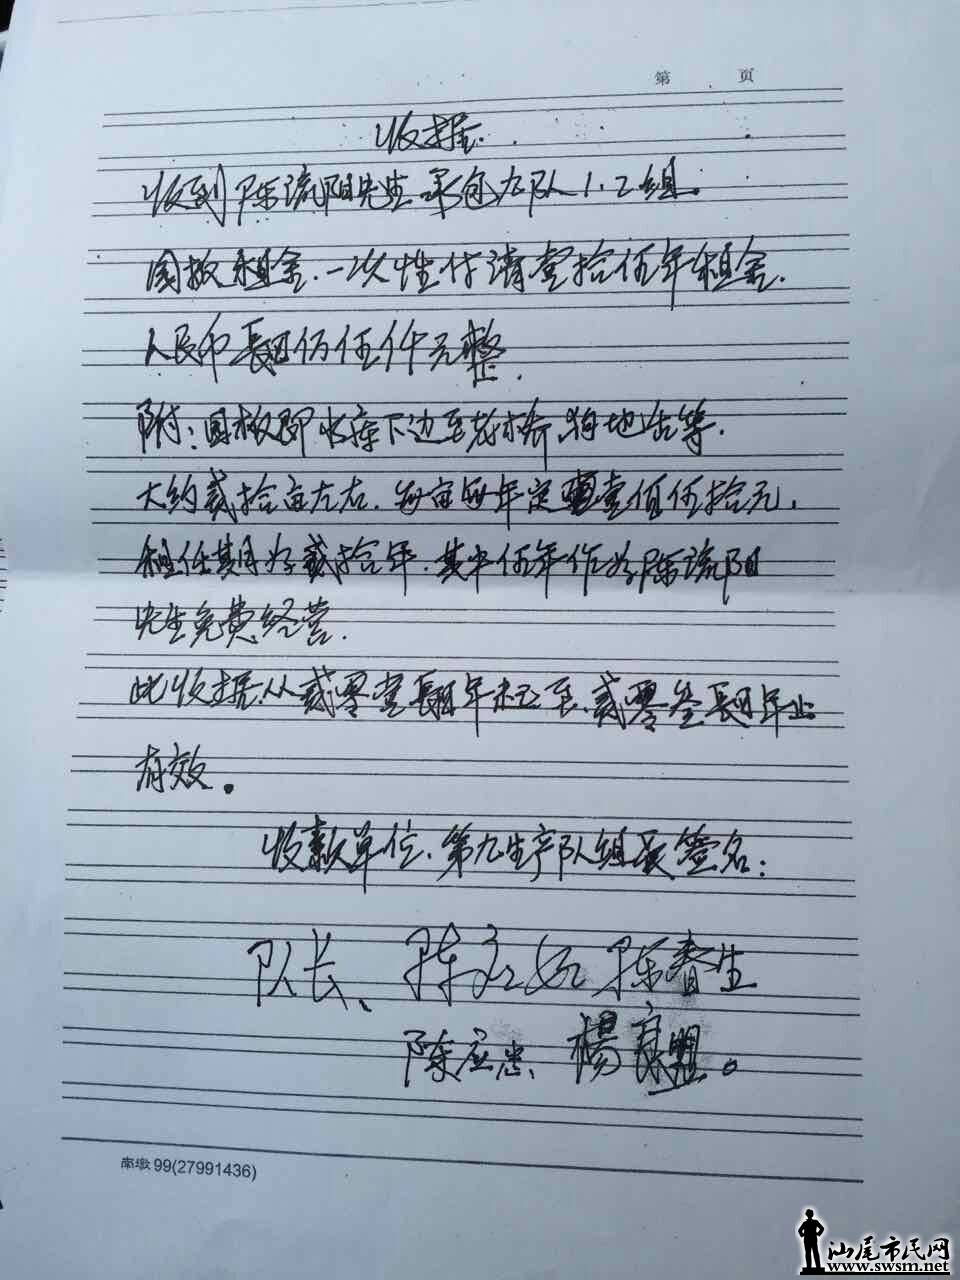 第 页
收据
收到陈流阳先生承包九队1.2组。
围板租金.一次性付清壹拾伍年租金.
人民币肆万伍仟元整.
附:围板即水库下边至老 地 等.
大约贰拾亩左右.每亩每年定壹佰伍拾元,
租任期为贰拾年.其中伍年作为陈流阳
先生免费经营.
此收据从贰零壹肆年起至贰零叁肆年止
有效。
收款单位、第九生产队组长签名:
队长、陈 陈春生
陈应忠、楊良盟。
南墩99(27991436)
汕尾市民网
www.swsm.net